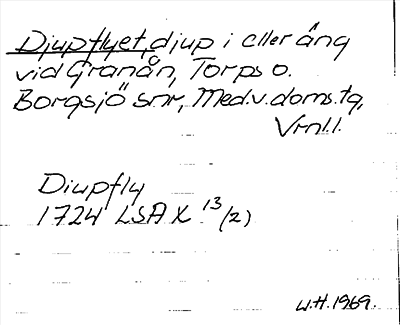 Djupflyet, djup i eller äng
vid Granån, Torps o.
Borgsjö snr, Med.v.doms.tg,
Vrnl.l.
Djupfly
1724 LSA X 13/(2)
W.H.1969.